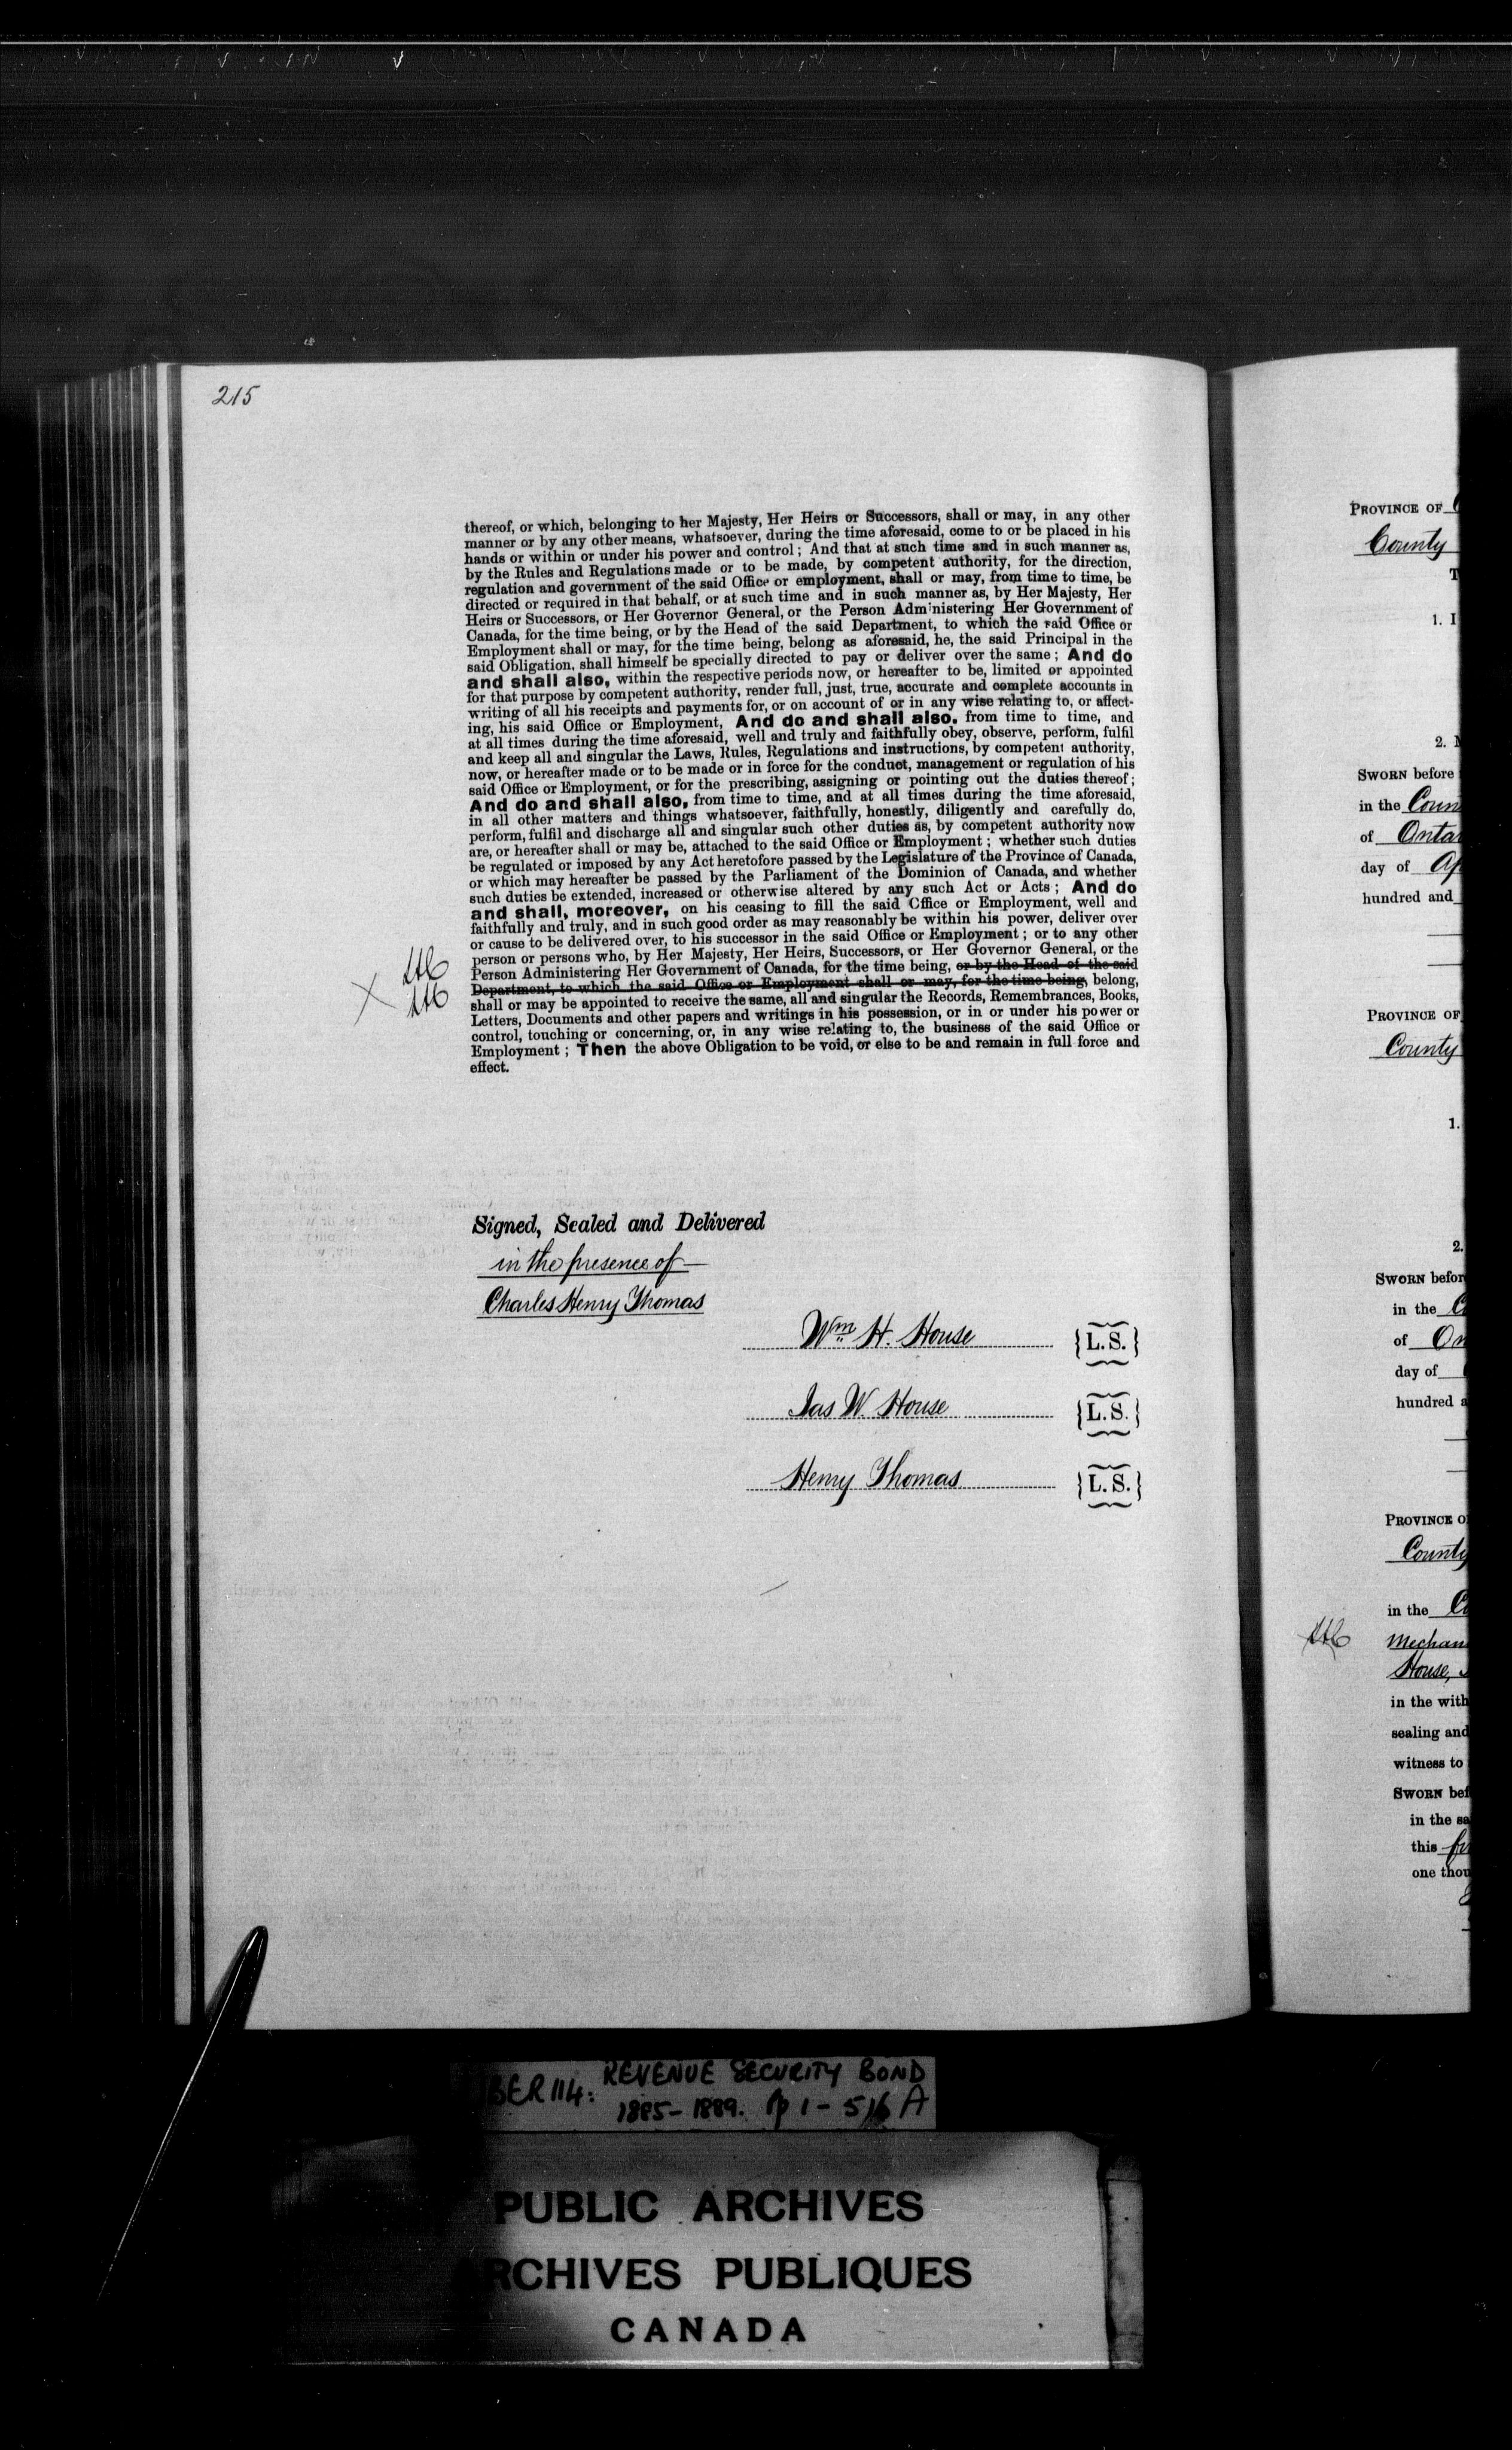 215
thereof, or which, belonging to her Majesty, Her Heirs or Successors, shall or may, in any other
manner or by any other means, whatsoever, during the time aforesaid, come to or be placed in his
hands or within or under his power and control; And that at such time and in such manner as,
by the Rules and Regulations made or to be made, by competent authority, for the direction,
regulation and government of the said Office or employment, shall or may, from time to time, be
directed or required in that behalf, or at such time and in such manner as, by Her Majesty, Her
Heirs or Successors, or Her Governor General, or the Person Administering Her Government of
Canada, for the time being, or by the Head of the said Department, to which the said Office or
Employment shall or may, for the time being, belong as aforesaid, he, the said Principal in the
said Obligation, shall himself be specially directed to pay or deliver over the same; And do
and shall also, within the respective periods now, or hereafter to be, limited or appointed
for that purpose by competent authority, render full, just, true, accurate and complete accounts in
writing of all his receipts and payments for, or on account of or in any wise relating to, or affect-
ing, his said Office or Employment, And do and shall also, from time to time, and
at all times during the time aforesaid, well and truly and faithfully obey, observe, perform, fulfil
and keep all and singular the Laws, Rules, Regulations and instructions, by competent authority,
now, or hereafter made or to be made or in force for the conduct, management or regulation of his
said Office or Employment, or for the prescribing, assigning or pointing out the duties thereof;
And do and shall also, from time to time, and at all times during the time aforesaid,
in all other matters and things whatsoever, faithfully, honestly, diligently and carefully do,
perform, fulfil and discharge all and singular such other duties as, by competent authority now
are, or hereafter shall or may be, attached to the said Office or Employment; whether such duties
be regulated or imposed by any Act heretofore passed by the Legislature of the Province of Canada,
or which may hereafter be passed by the Parliament of the Dominion of Canada, and whether
such duties be extended, increased or otherwise altered by any such Act or Acts; And do
and shall, moreover, on his ceasing to fill the said Office or Employment, well and
faithfully and truly, and in such good order as may reasonably be within his power, deliver over
or cause to be delivered over, to his successor in the said Office or Employment; or to any other
person or persons who, by Her Majesty, Her Heirs, Successors, or Her Governor General, or the
Person Administering Her Government of Canada, for the time being, or by the Head of the said
Department, to which the said Office or Employment shall or may, for the time being, belong,
shall or may be appointed to receive the same, all and singular the Records, Remembrances, Books,
Letters, Documents and other papers and writings in his possession, or in or under his power or
control, touching or concerning, or, in any wise relating to, the business of the said Office or
Employment; Then the above Obligation to be void, or else to be and remain in full force and
effect.
Signed, Sealed and Delivered
in the presence of
Charles Henry Thomas
Wm H. House {L.S.}
Jas W. House {L.S.}
Henry Thomas {L.S.}
PROVINCE OF
County
1. I
2.
SWORN before
in the
of
day of
hundred and
PROVINCE OF
County
1.
2.
SWORN
in the
of
day of
hundred
PROVINCE
County
in the
House,
in the
sealing and
witness to
SWORN
in the
this
one
114: REVENUE SECURITY BOND
1885-1889. pp 1-516A
PUBLIC ARCHIVES
ARCHIVES PUBLIQUES
CANADA